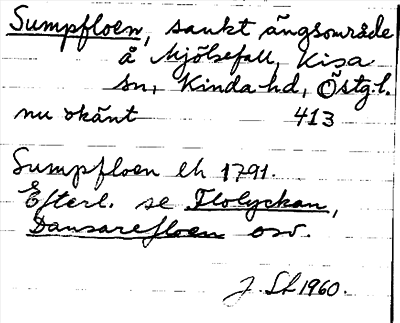 Sumpfloen, sankt ängsområde
å Mjölsefall, Kisa
sn, Kinda hd, Östg.l.
nu okänt 413
Sumpfloen lh 1791.
Efterl. se Flolyckan,
Dansarefloen osv.
J. Sh 1960.